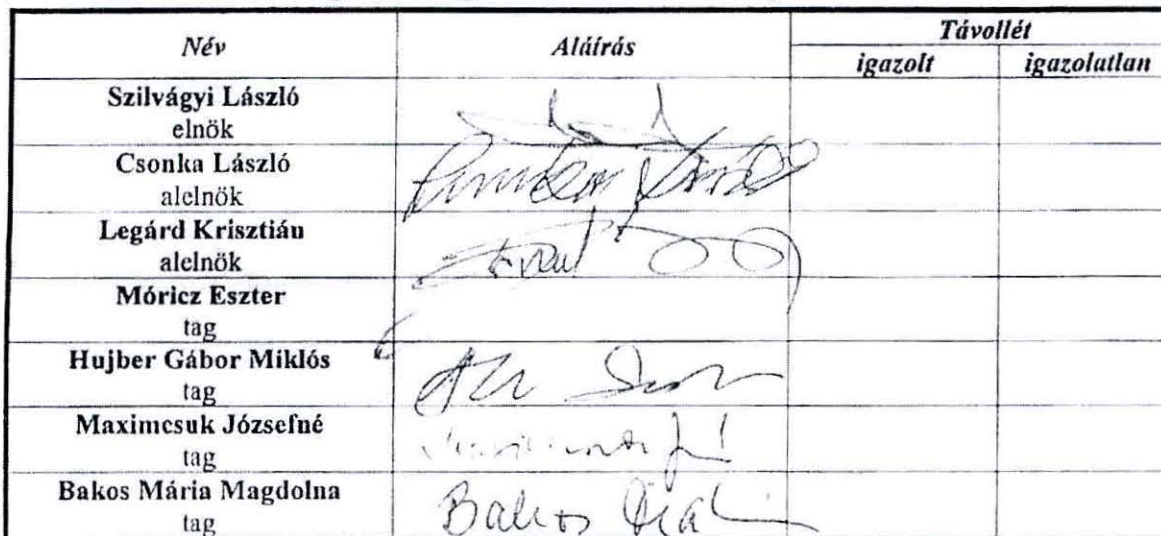 Név Aláírás Távollét
igazolt igazolatlan
Szilvágyi László
elnök
Csonka László
alelnök
Legárd Krisztián
alelnök
Móricz Eszter
tag
Hujber Gábor Miklós
tag
Maximcsuk Józsefné
tag
Bakos Mária Magdolna
tag
Bakos